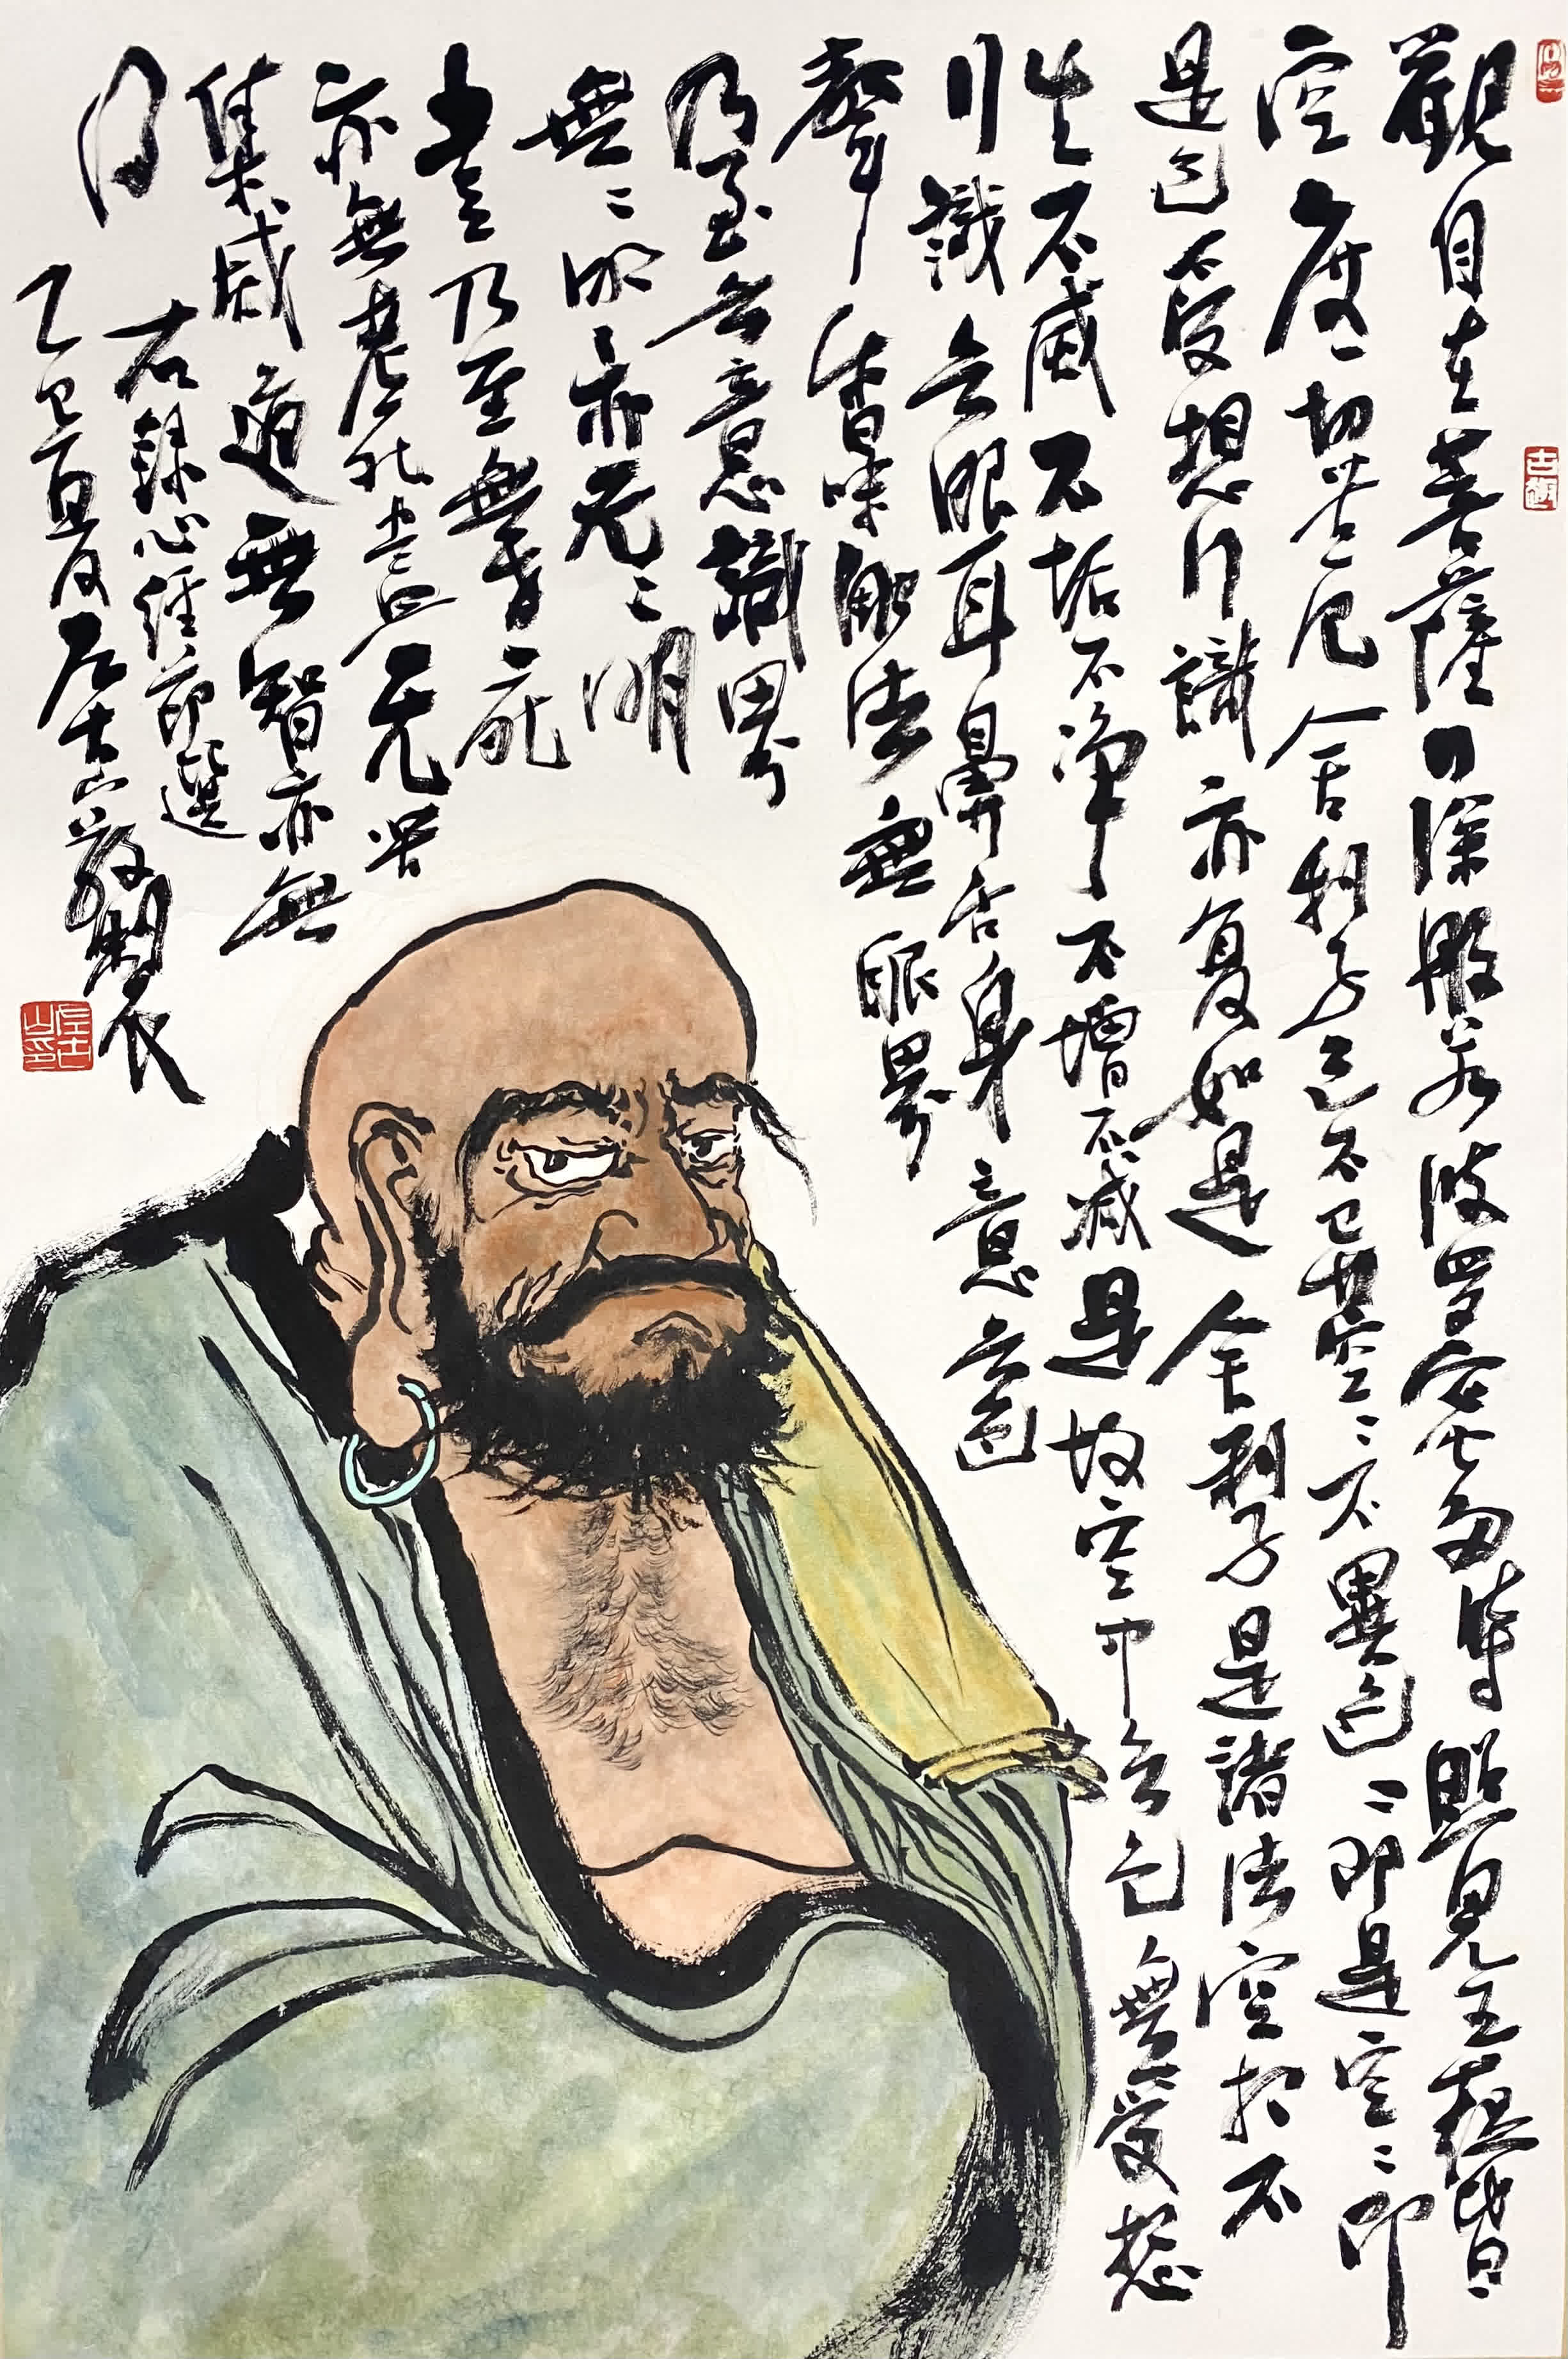 觀自在菩薩行深般若波羅蜜多時照見五蘊皆
空度一切苦厄舍利子色不異空々不異色々即是空々即
是色受想行識亦復如是舍利子是諸法空相不
生不滅不垢不淨不增不減是故空中无色無受想
行識无眼耳鼻舌身意无色
聲香味觸法無眼界
乃至无意識界
無々明亦无々明
盡乃至無老死
亦無老死盡无苦
集滅道無智亦無
得
右錄心經節選
乙巳夏月左古山敬製
左古山印
古趣